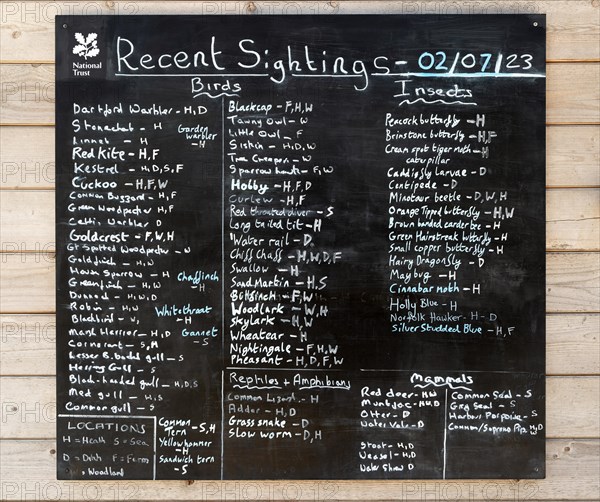 National Trust
Recent Sightings - 02/07/23
Birds
Insects
Dartford Warbler - H, D
Stonechat - H
Linnet - H
Garden warbler - H
Red Kite - H, F
Kestrel - H, D, S, F
Cuckoo - H, F, W
Common Buzzard - H, F
Green Woodpecker H, F
Cettis Warbler D
Goldcrest - F, W, H
Gt Spotted Woodpecker - W
Goldfinch - H
House Sparrow - H
Greenfinch - H
Chaffinch - H
Dunnock - H, W, D
Robin - H, W
Blackbird - H,
Whitethroat - H
Marsh Harrier - H, D
Cormorant - S, H
Gannet - S
Lesser B. backed gull - S
Herring Gull - S
Black-headed gull - H, D, S
Med gull - H
Common gull - S
LOCATIONS
H = Heath S = Sea
D = Ditch F = Farm
Woodland
Common Tern - S, H
Yellowhammer - H
Sandwich tern - S
Blackcap - F, H, W
Tawny Owl - W
Little Owl - F
Siskin - H, D, W
Tree Creeper - W
Sparrow hawk - F, W
Hobby - H, F, D
Curlew - H, F
Red throated diver - S
Long tailed tit - H
Water rail - D
Chiff Chaff - H, W, D, F
Swallow - H
Sand Martin - H, S
Bullfinch - F, W
Woodlark - W, H
Skylark - H, W
Wheatear - H
Nightingale - F, H, W
Pheasant - H, D, F, W
Reptiles + Amphibians
Common Lizard - H
Adder - H, D
Grass snake - D
Slow worm - D, H
Peacock butterfly - H
Brimstone butterfly - H, F
Cream spot tiger moth - H
caterpillar
Caddisfly Larvae - D
Centipede - D
Minotaur beetle - D, W, H
Orange Tipped butterfly - H, W
Brown banded carder bee - H
Green Hairstreak butterfly - H
Small copper butterfly - H
Hairy Dragonfly - D
May bug - H
Cinnabar moth - H
Holly Blue - H
Norfolk Hawker - H - D
Silver Studded Blue - H, F
Mammals
Red deer - H, W
Muntjac - H, W, D
Otter - D
Water Vole - D
Stoat - H, D
Weasel - H, D
Water Shrew D
Common Seal - S
Grey Seal - S
Harbour Porpoise - S
Common/Soprano Pip. W, D H